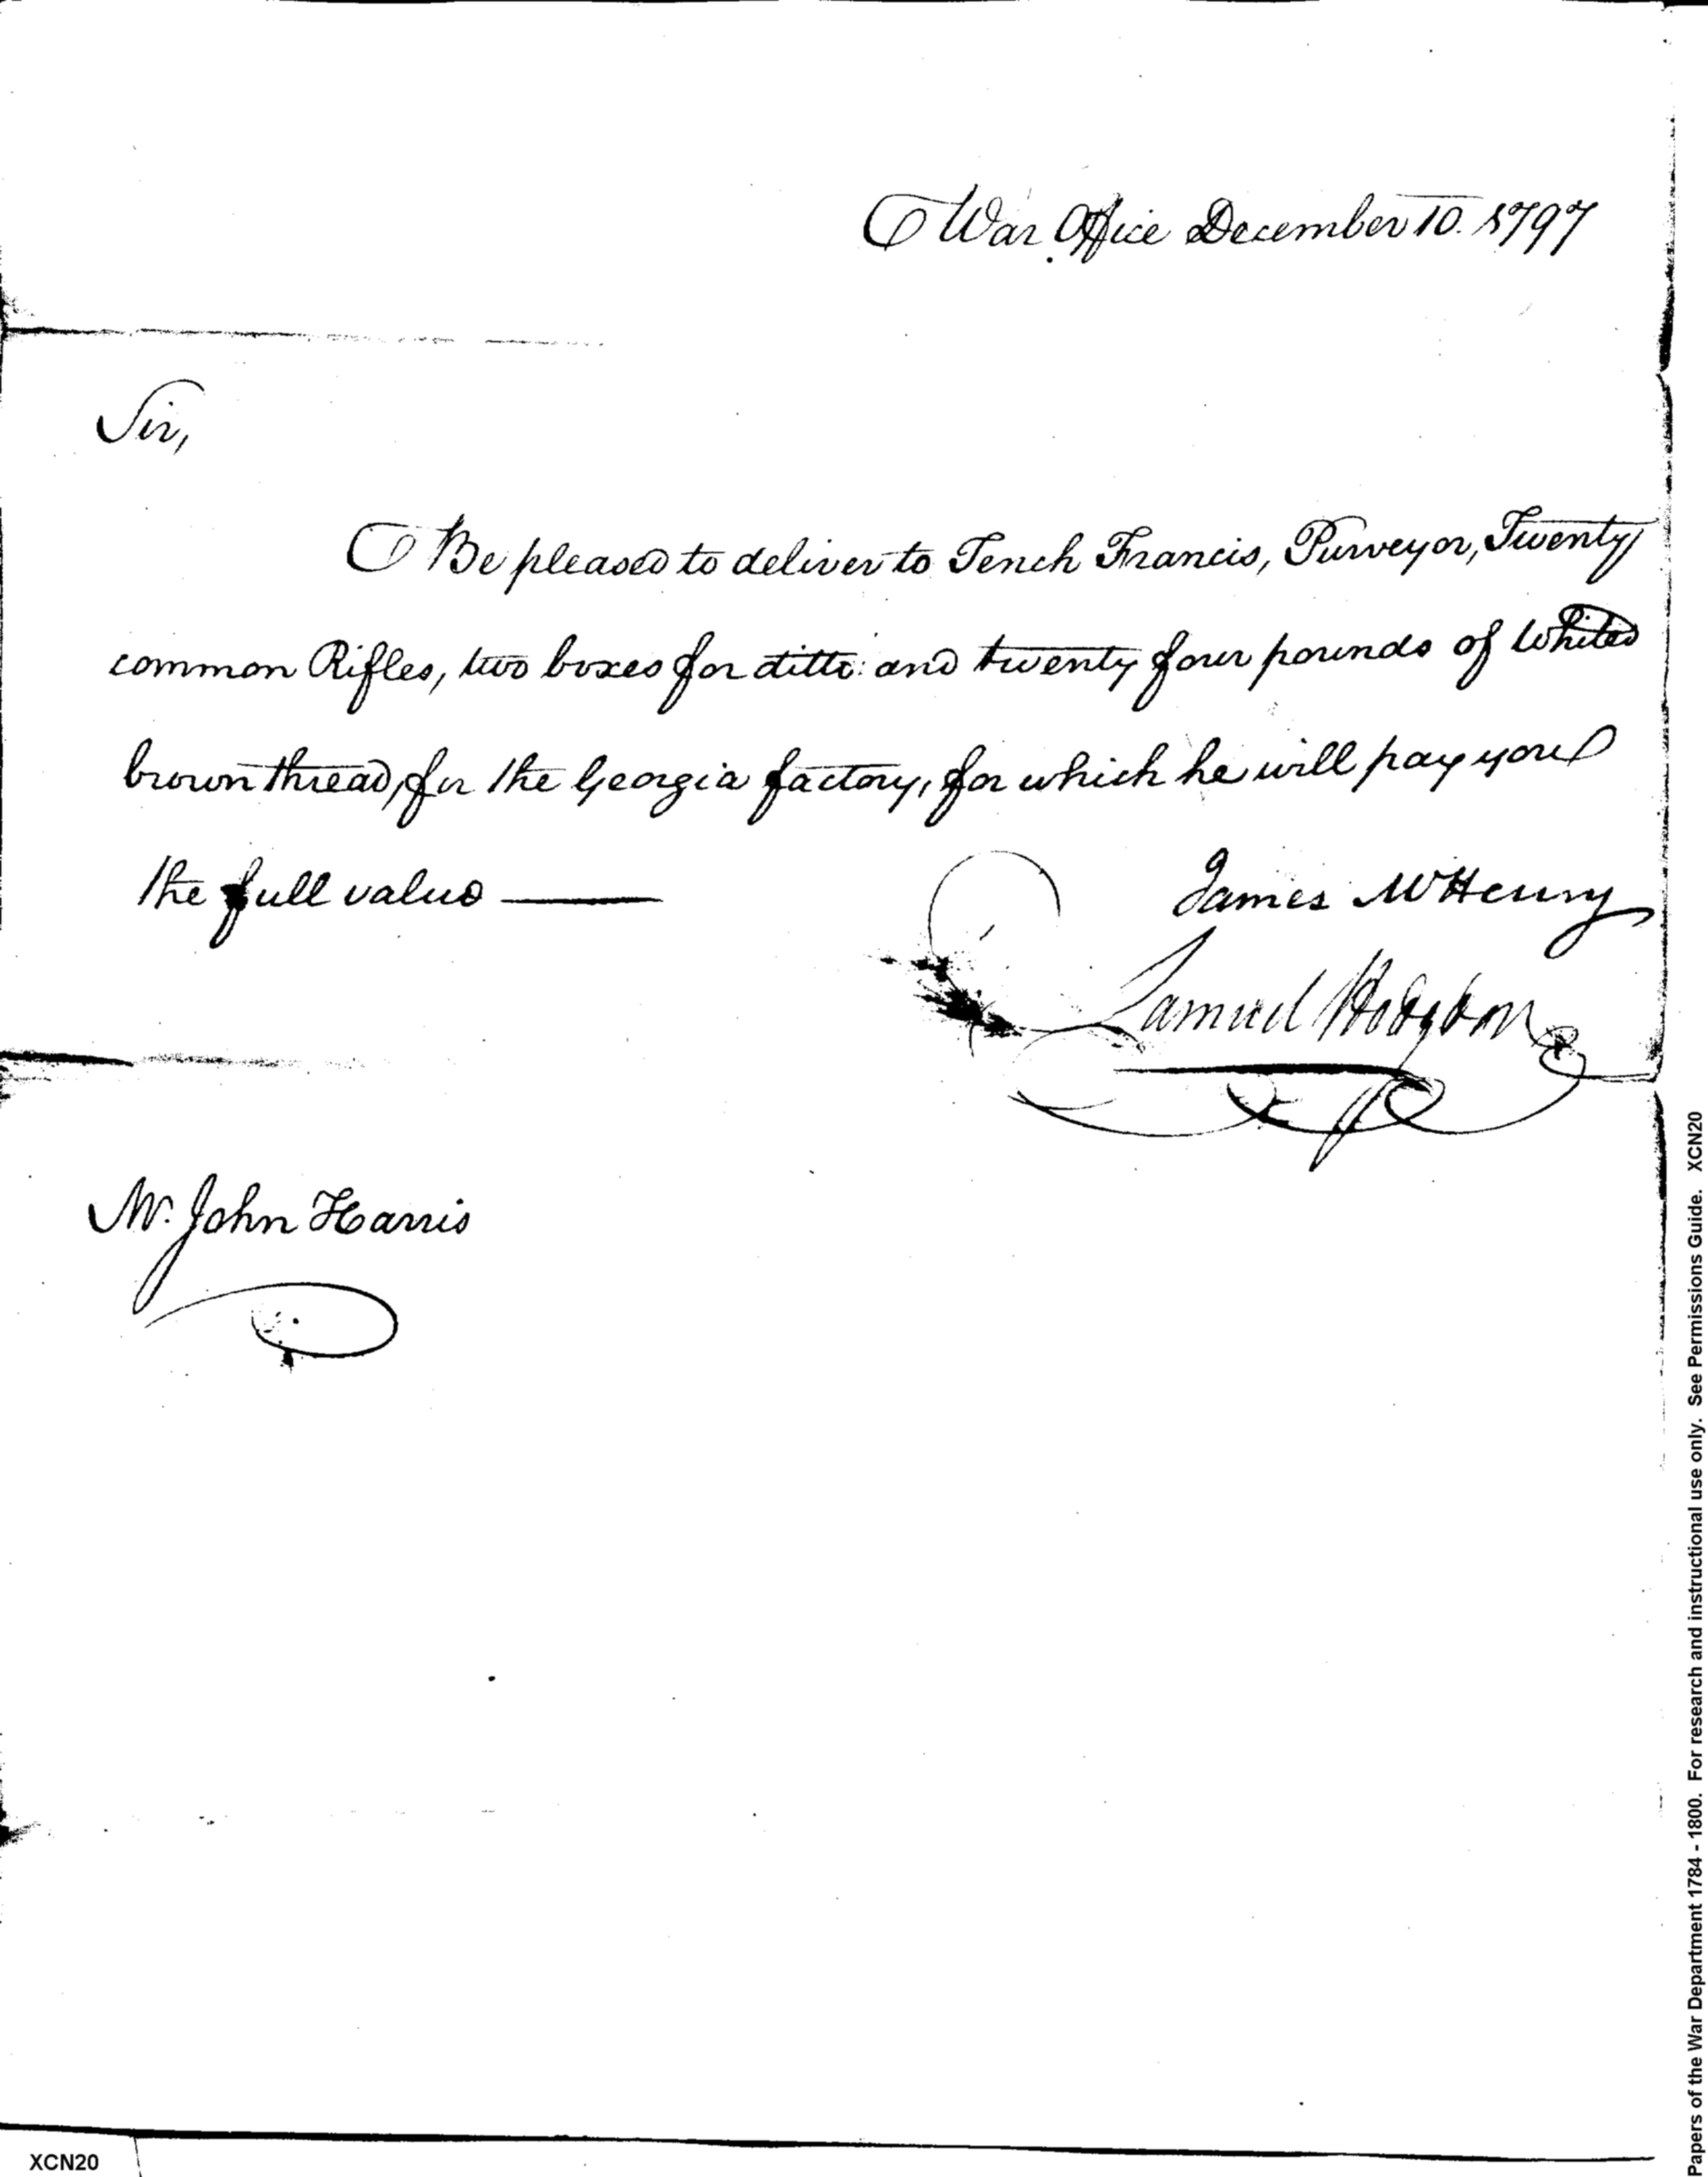 War Office December 10. 1797
Sir,
Be pleased to deliver to Tench Francis, Purveyor, Twenty
common Rifles, two boxes for ditto: and twenty four pounds of Whited
brown thread, for the Georgia factory, for which he will pay you
the full value
James McHenry
Samuel Hodgdon
Mr. John Harris
XCN20
Papers of the War Department 1784 - 1800. For research and instructional use only. See Permissions Guide. XCN20